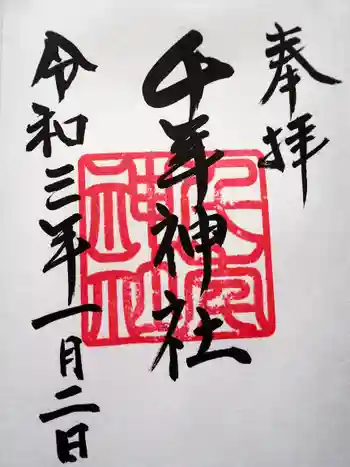 奉拝
千年神社
令和三年一月二日